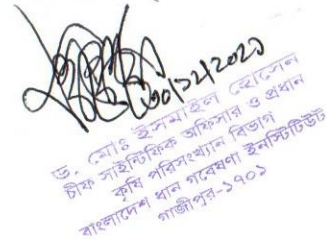 ৩০/১২/২০২১
ড. মোঃ ইসমাইল হোসেন
চীফ সাইন্টিফিক অফিসার ও প্রধান
কৃষি পরিসংখ্যান বিভাগ
বাংলাদেশ ধান গবেষণা ইনস্টিটিউট
গাজীপুর-১৭০১